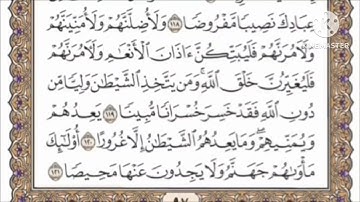 عِبَادِكَ نَصِيبًا مَّفْرُوضًا ١١٨ وَلَأُضِلَّنَّهُمْ وَلَأُمَنِّيَنَّهُمْ
وَلَءَامُرَنَّهُمْ فَلَيُبَتِّكُنَّ ءَاذَانَ ٱلْأَنْعَٰمِ وَلَءَامُرَنَّهُمْ
فَلَيُغَيِّرُنَّ خَلْقَ ٱللَّهِ ۚ وَمَن يَتَّخِذِ ٱلشَّيْطَٰنَ وَلِيًّا مِّن
دُونِ ٱللَّهِ فَقَدْ خَسِرَ خُسْرَانًا مُّبِينًا ١١٩ يَعِدُهُمْ
وَيُمَنِّيهِمْ ۖ وَمَا يَعِدُهُمُ ٱلشَّيْطَٰنُ إِلَّا غُرُورًا ١٢٠ أُو۟لَٰٓئِكَ
مَأْوَىٰهُمْ جَهَنَّمُ وَلَا يَجِدُونَ عَنْهَا مَحِيصًا ١٢١
٩٧